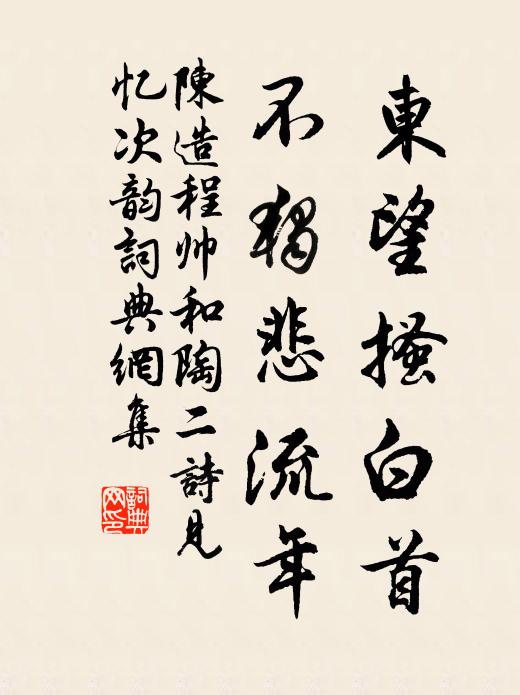 東望搔白首
不獨悲流年
陳造程帅和陶二詩見
忆次韵詞典網集
詞典
网印